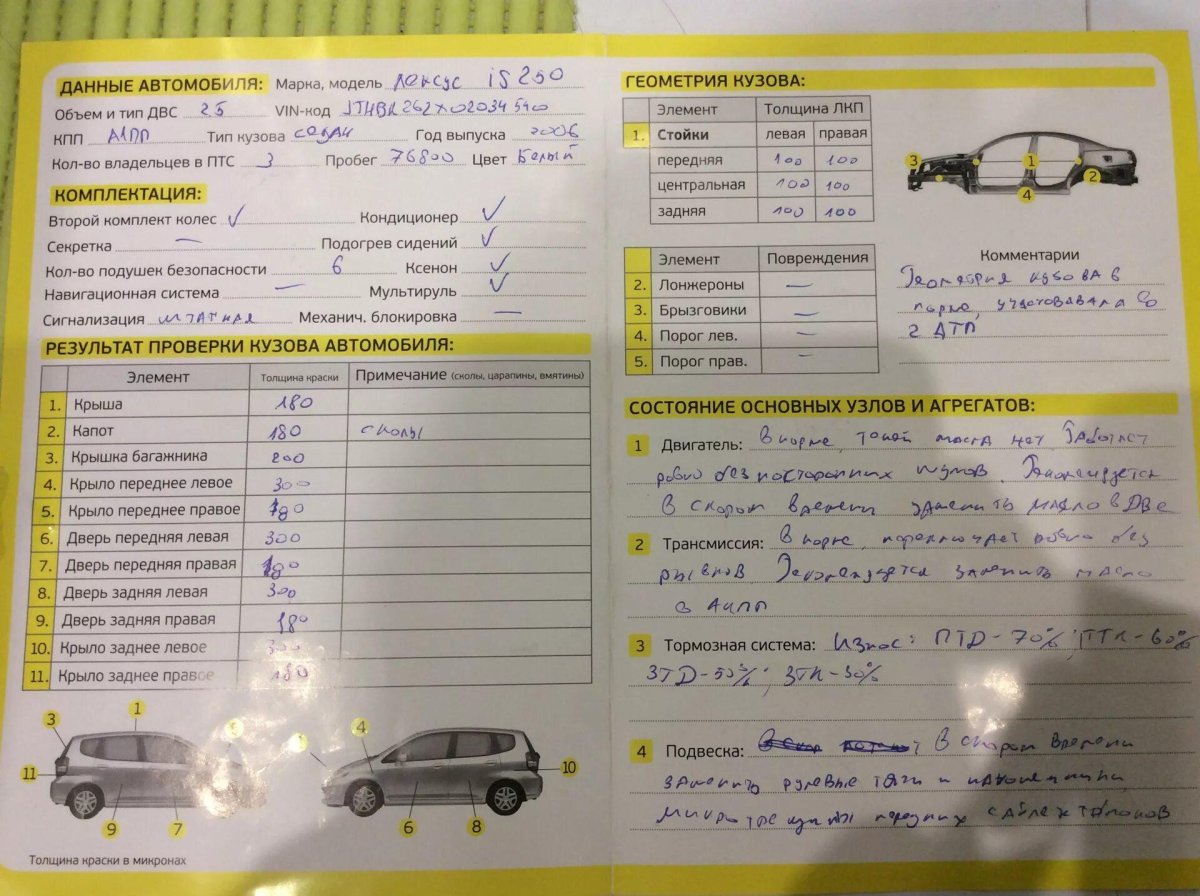 ДАННЫЕ АВТОМОБИЛЯ: Марка, модель Лексус iS 250
Объем и тип ДВС 2.5 VIN-код JTHBK262X02034540
КПП АКПП Тип кузова седан Год выпуска 2006
Кол-во владельцев в ПТС 3 Пробег 76800 Цвет Белый
КОМПЛЕКТАЦИЯ:
Второй комплект колес ✓ Кондиционер ✓
Секретка — Подогрев сидений ✓
Кол-во подушек безопасности 6 Ксенон ✓
Навигационная система — Мультируль ✓
Сигнализация штатная Механич. блокировка —
РЕЗУЛЬТАТ ПРОВЕРКИ КУЗОВА АВТОМОБИЛЯ:
Элемент Толщина краски Примечание (сколы, царапины, вмятины)
1. Крыша 180
2. Капот 180 сколы
3. Крышка багажника 200
4. Крыло переднее левое 300
5. Крыло переднее правое 180
6. Дверь передняя левая 300
7. Дверь передняя правая 180
8. Дверь задняя левая 300
9. Дверь задняя правая 180
10. Крыло заднее левое 300
11. Крыло заднее правое 180
3 1 4
11 10
9 7 6 8
Толщина краски в микронах
ГЕОМЕТРИЯ КУЗОВА:
Элемент Толщина ЛКП
1. Стойки левая правая
передняя 100 100
центральная 100 100
задняя 100 100
3 1 2 4
Элемент Повреждения
2. Лонжероны —
3. Брызговики —
4. Порог лев. —
5. Порог прав. —
Комментарии
Геометрия кузова в
норме, участвовала во
2 ДТП
СОСТОЯНИЕ ОСНОВНЫХ УЗЛОВ И АГРЕГАТОВ:
1 Двигатель: В норме, течей масла нет Работает
ровно без посторонних шумов. Рекомендуется
В скором времени заменить масло в ДВС
2 Трансмиссия: В норме, переключает ровно без
рывков Рекомендуется заменить масло
в АКПП
3 Тормозная система: Износ: ПТД-70%, ПТК-60%
ЗТД-50%, ЗТК-30%
4 Подвеска: В скором времени
заменить рулевые тяги и наконечники,
микротрещины передних сайлентблоков